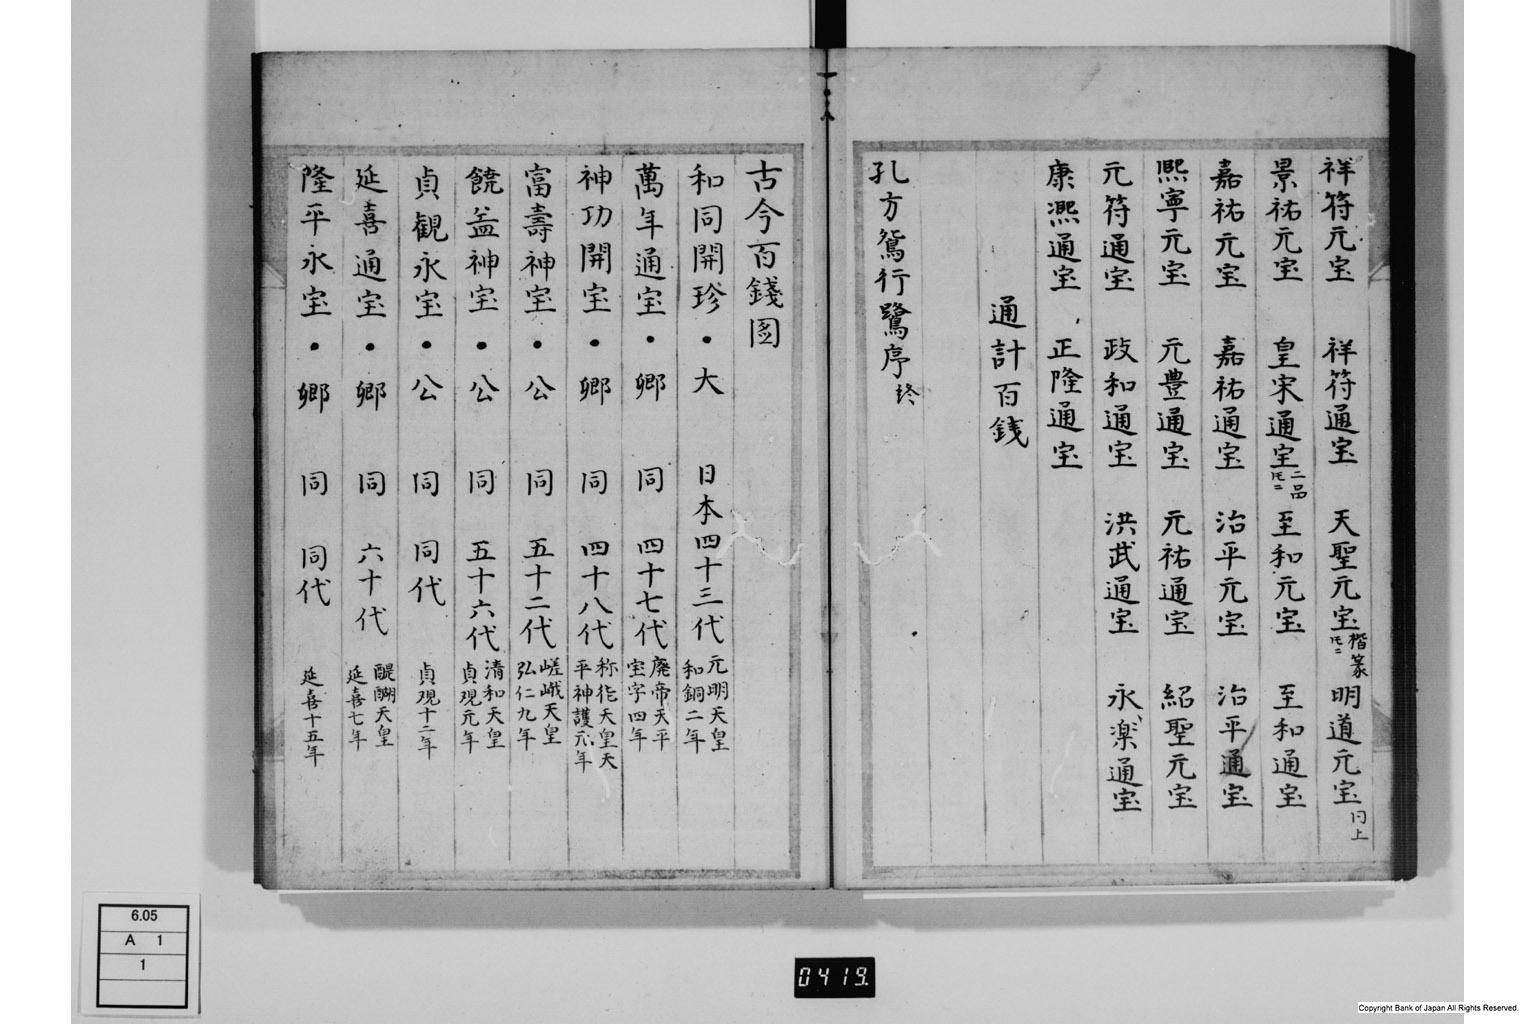 祥符元宝 祥符通宝 天聖元宝 楷篆 明道元宝 同上
景祐元宝 皇宋通宝 二品 至和元宝 至和通宝
嘉祐元宝 嘉祐通宝 治平元宝 治平通宝
熙寧元宝 元豊通宝 元祐通宝 紹聖元宝
元符通宝 政和通宝 洪武通宝 永楽通宝
康熙通宝 正隆通宝
通計百銭
孔方鴛行鷺序 終
古今百錢図
和同開珍・大 日本四十三代 元明天皇 和銅二年
萬年通宝・郷 同 四十七代 廃帝天平宝字四年
神功開宝・郷 同 四十八代 称徳天皇天平神護元年
富壽神宝・公 同 五十二代 嵯峨天皇 弘仁九年
饒益神宝・公 同 五十六代 清和天皇 貞観元年
貞観永宝・公 同 同代 貞观十二年
延喜通宝・郷 同 六十代 醍醐天皇 延喜七年
隆平永宝・郷 同 同代 延喜十五年
6.05
A 1
1
0419.
Copyright Bank of Japan All Rights Reserved.